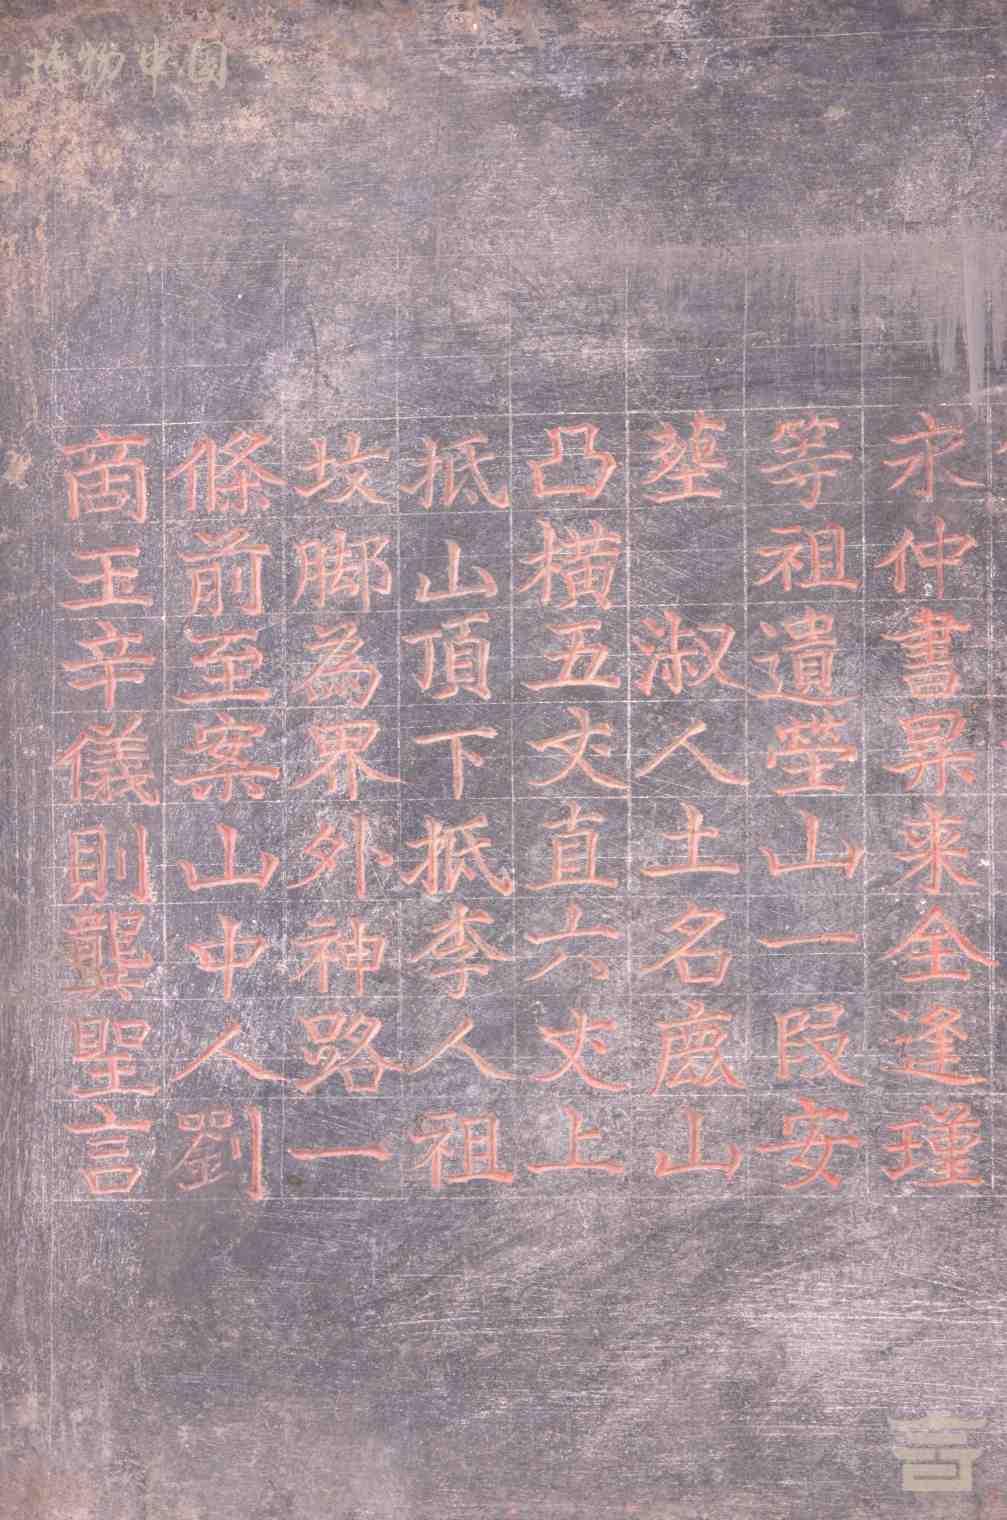 博物中国
永仲書昇来全逢瑾
等祖遺塋山一段安
塟 淑人土名鹿山
凸横五丈直六丈上
抵山頂下抵李人祖
坟脚為界外神路一
條前至案山中人劉
商玉辛儀則龔聖言